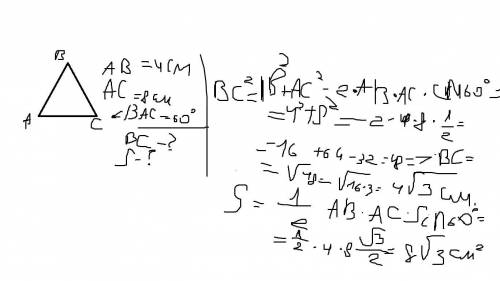 B
A
C
AB = 4см
AC = 8см
∠BAC = 60°
BC - ?
S - ?
BC² = AB² + AC² - 2 · AB · AC · cos60° =
= 4² + 8² - 2 · 4 · 8 · 1/2 =
= 16 + 64 - 32 = 48 => BC =
= √48 = √16·3 = 4√3 см.
S = 1/2 AB · AC · Sin60° =
= 1/2 · 4 · 8 √3/2 = 8√3 см²